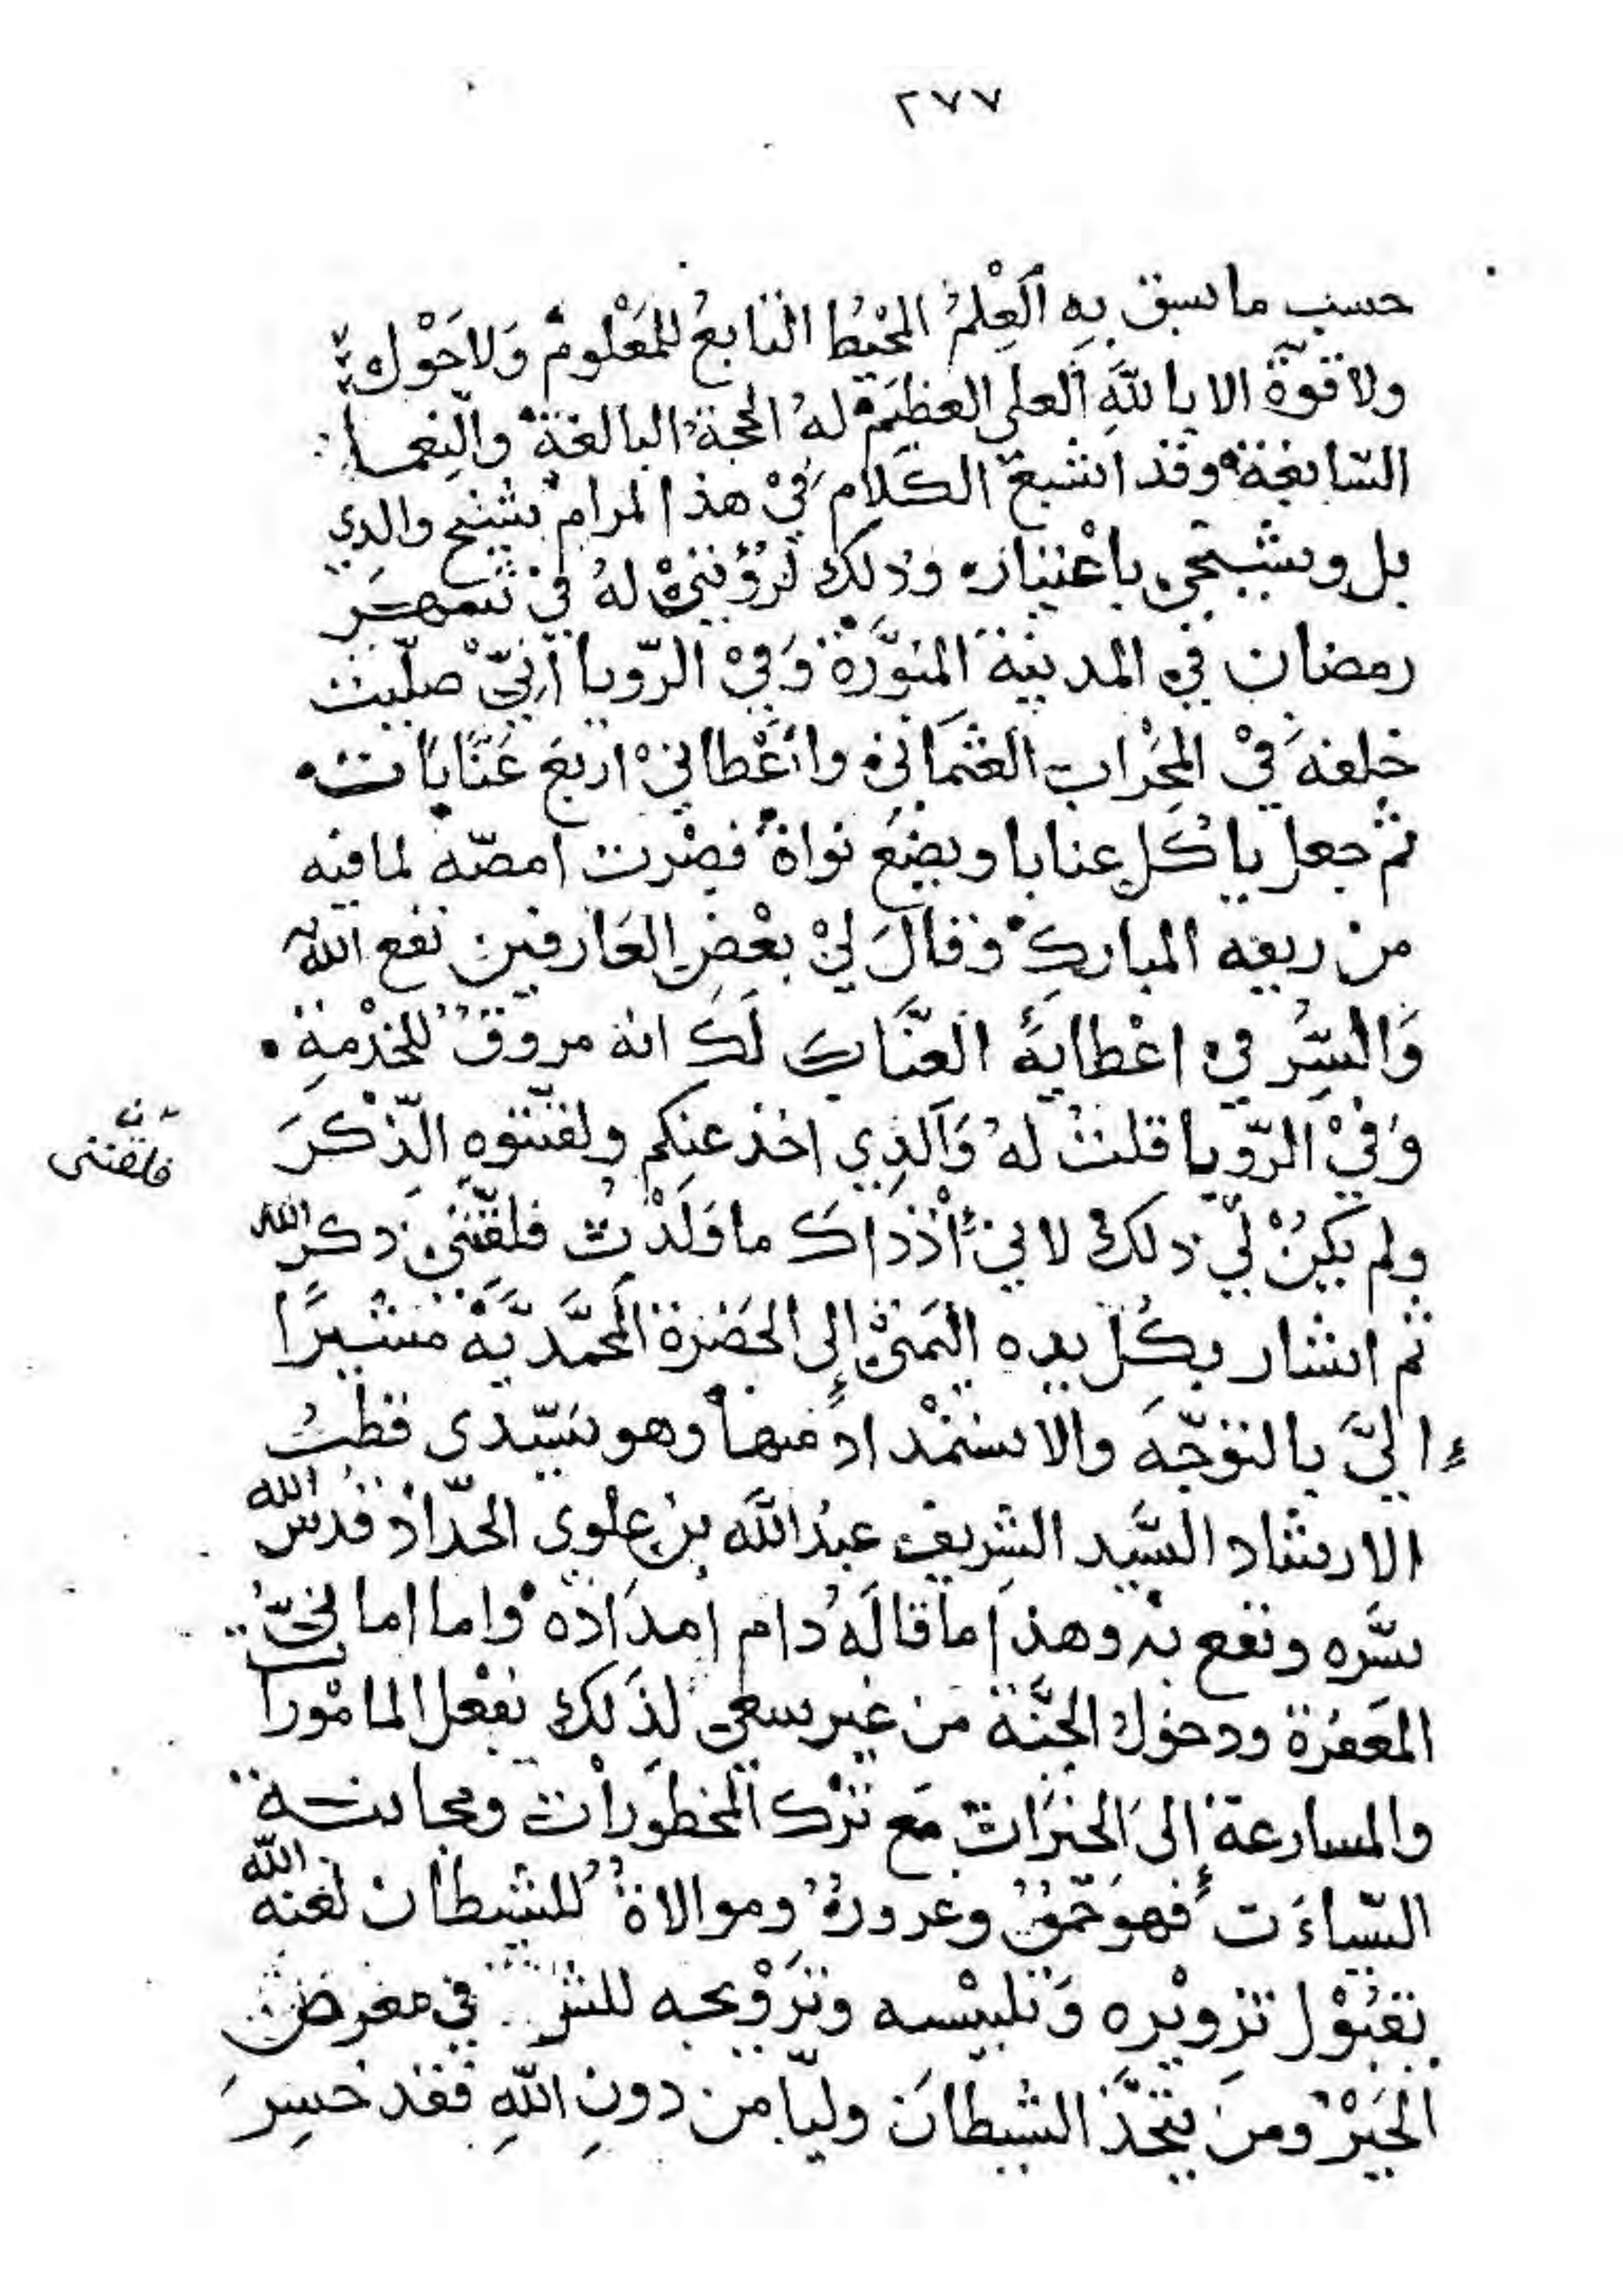 ٢٧٧
حسب ما سبق به العِلْمُ المُحيْطُ التابعُ للمَعْلوم وَلاحَوْل
ولا قوة الا بالله العلي العظيم له الحجة البالغة والنعما
السّابغة وقد اشبع الكلام في هذا المرام شيخ والدي
بل وشيخي باعتباره وذلك لرؤيتي له في شهر
رمضان في المدينة المنوَّرة وَفي الرّويا أنيّ صلّيت
خلفه في المِحْراب العثماني واعْطاني اربع عَنّابات
ثم جعل ياكل عنابا ويضع نواة فصرت امصّه لما فيه
من ريقه المبارك وقالَ ليْ بعْض العَارفين نفع الله به
وَالسّر في اعْطايهِ العنّاب لَك انه مروق للخدْمةِ
وَفيْ الرّويا قلت له وَالدِي اخذ عنكم ولقنتوه الذّكرَ
ولم يَكنْ ليّ ذلك لاني أذذاك ما وَلدْت فلقّنّي ذكر الله
فلقنني
ثم اشار بكل يده اليمنى إلى الحَضرة المحمّديّة مشيرًا
إليَّ بالتوجّه والاستمْداد منها وهو سيّدى قطب
الارشاد السَّيد الشريف عبدُ الله بن علوي الحدّاد قدس الله
سّره ونفع به وهذا ما قالَه دام امدَاده واما امانيّ
المغفرة ودخول الجنّة من غير سعى لذلك بفعْل المامورا
والمسارعة إلى الخيرات مع ترك المحظورات ومجانبة
السّياءَت فهو حمق وغرور وموالاة للشيطان لعنه الله
بقبوْل تزويْره وَتلبيْسه وترَوْيجه للشر في معرض
الخيْر ومن يتخذ الشيطانَ وليّا من دونِ اللهِ فقد خسِرَ